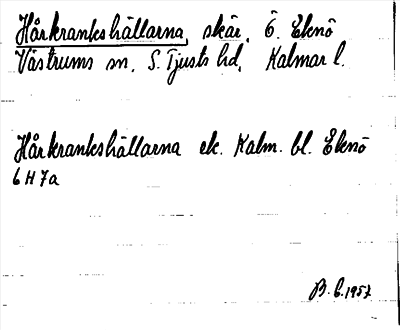 Hårkrankshällarna, skär, Ö. Eknö
Västrums sn, S. Tjusts hd, Kalmar l.
Hårkrankshällarna ek. Kalm. bl. Eknö
6H7a
B. C. 1957